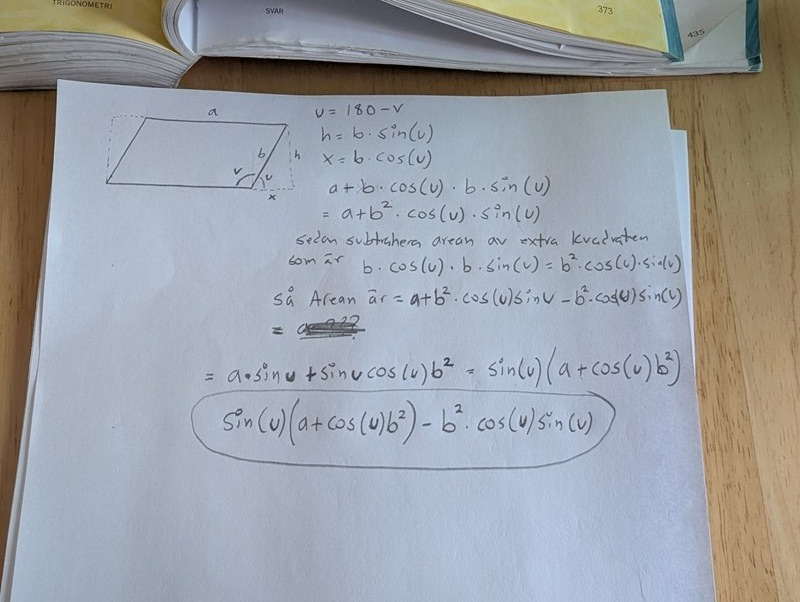 TRIGONOMETRI
SVAR
373
435
a
b
h
v
u
x
u = 180 - v
h = b · sin(u)
x = b · cos(u)
a + b · cos(u) · b · sin(u)
= a + b² · cos(u) · sin(u)
sedan subtrahera arean av extra kvadraten
som är b · cos(u) · b · sin(u) = b² · cos(u) · sin(u)
så Arean är = a + b² · cos(u) sin u - b² · cos(u) sin(u)
=
= a · sin u + sin u cos(u) b² = sin(u) (a + cos(u) b²)
sin(u) (a + cos(u) b²) - b² · cos(u) sin(u)